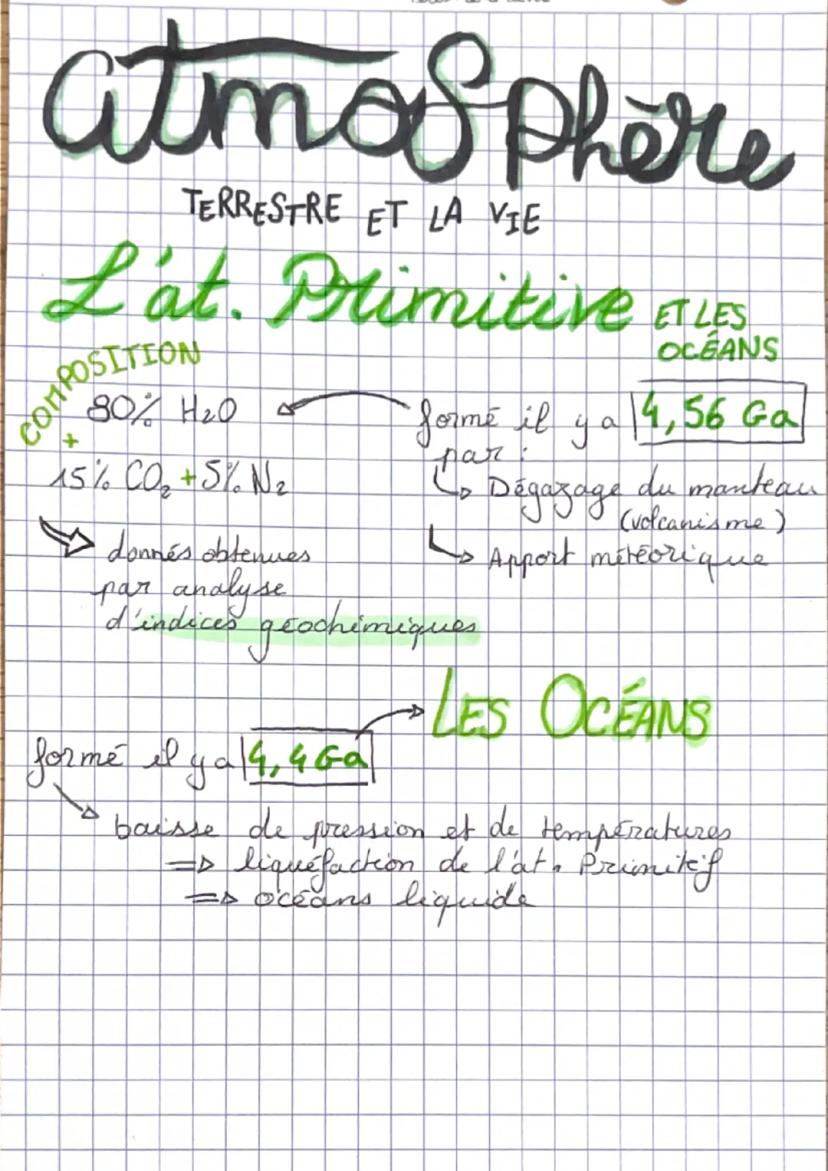 atmosphère
TERRESTRE ET LA VIE
L'at. Primitive ET LES
OCÉANS
COMPOSITION
80% H2O
+
15% CO2 + 5% N2
donnés obtenues
par analyse
d'indices géochimiques
formé il y a 4,56 Ga
par :
Dégazage du manteau
(volcanisme)
Apport météorique
LES OCÉANS
formé il y a 4,4 Ga
baisse de pression et de températures
=> liquéfaction de l'at. Primitif
=> océans liquide